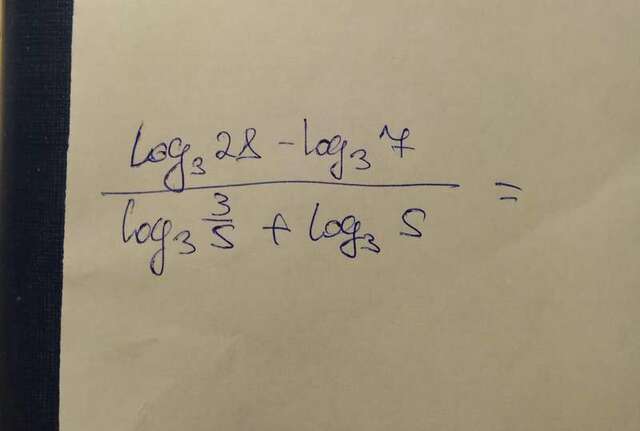 log₃ 28 - log₃ 7
log₃ 3/5 + log₃ 5 =